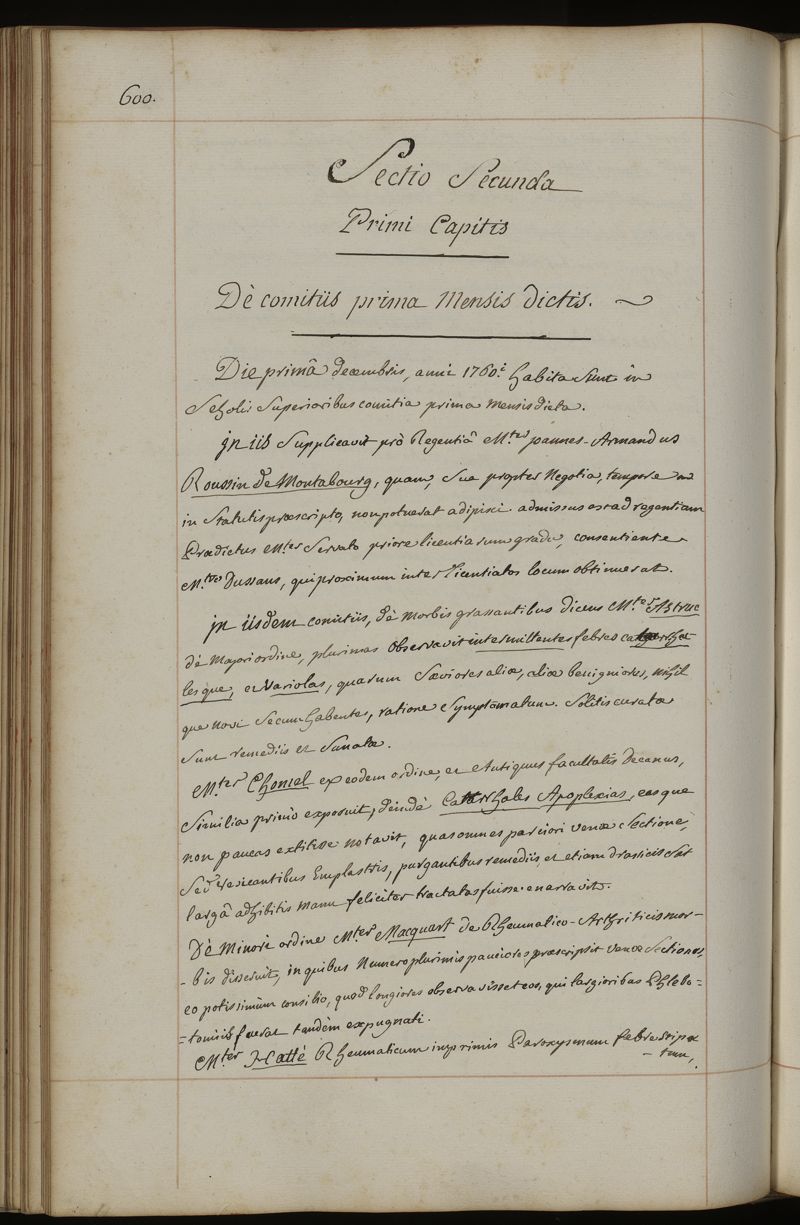 600.
Sectio Secunda
Primi Capitis
Dè comitiis prima Mensis dictis.
Die primâ decembris, anni 1760.i habita sunt in
Scholis Superioribus comitia prima mensis dicta.
jn iis Supplicavit prò Regentiâ M.ter joannes-Armandus
Roussin de Montabourg, quam, sua propter Negotia, tempore
in Statutis præscripto, non potuerat adipisci. admissus est ad regentiam
Prædictus M.ter Servato priore licentiarum gradu, consentiente
M.tro Dussans, qui proximum inter licentiatos locum obtinuerat.
jn iisdem comitiis, dè morbis grassantibus dicens M.ter Astruc
dè Majori ordine, plurimas observavit intermittentes febres catarrha-
les que, et Variolas, quarum Sæviores aliæ, aliæ benigniores, nihil
que novi Secum habentes, ratione Symptomatum. Solitis curatæ
Sunt remediis et Sanatæ.
M.ter Chomel ex eodem ordine, et Antiquus facultatis decanus,
Similia primò exposuit, deindè Catarrhales Apoplexias, eas que
non paucas extitisse notavit, quas omnes parciori venæ Sectione,
Seu vesicantibus Emplastris, purgantibus remediis, et etiam drasticis
largâ adhibitis manu feliciter tractatas fuisse enarravit.
Dè Minori ordine M.ter Macquart de Rheumatico-Arthriticis mor-
-bis disseruit, in quibus Numero plurimis pauciores præscripsit venæ Sectiones,
eo potissimùm consilio, quod longiores observavisset eos, qui largioribus Phlebo=
=tomiis fuerat tandèm expugnati.
M.ter Hatté Rheumaticum inprimis Paroxysmum febre stipa
-tum,